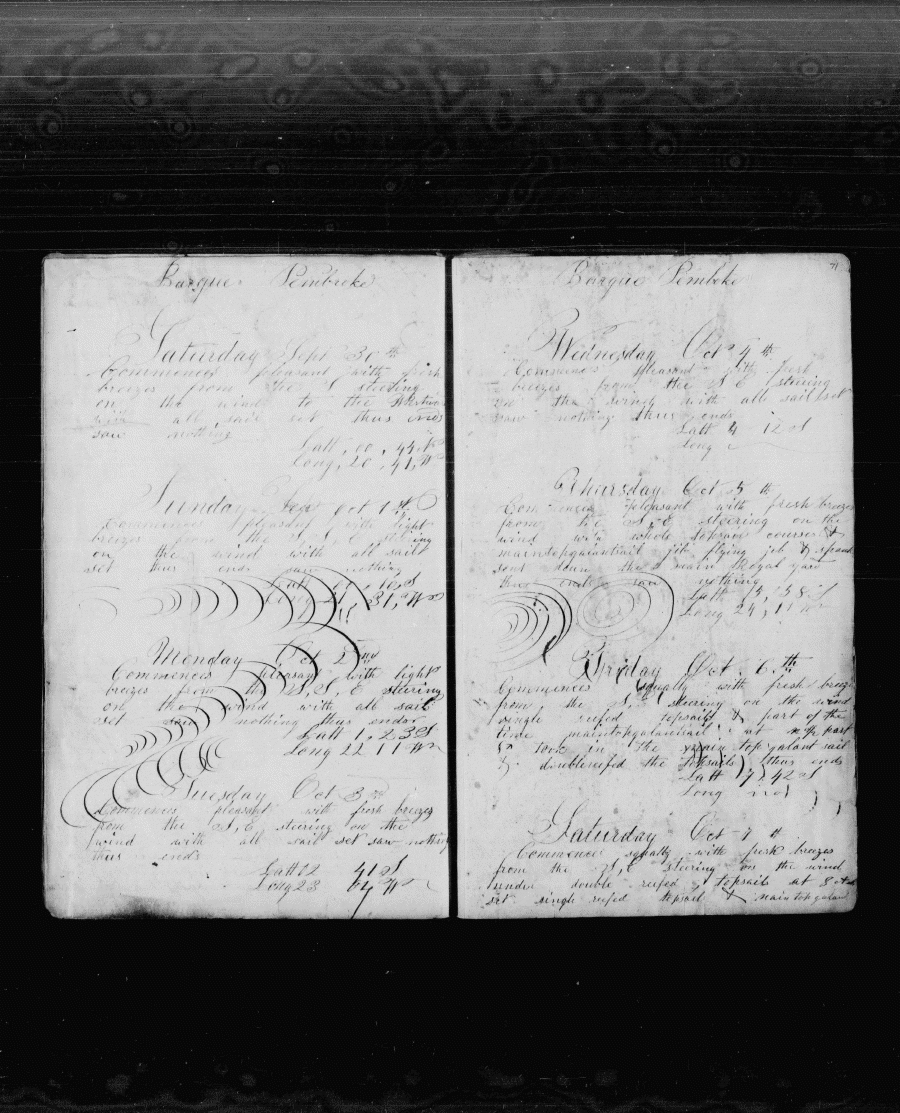 Barque Pembroke
Saturday Sept 30th
Commences pleasant with fresh
breezes from the S E steering
on the wind to the
with all sail set thus ends
saw nothing
Latt, 00, 44
Long, 20, 41, W
Sunday Oct 1st
Commences pleasant with light
breezes from the S, S, E steering
on the wind with all sail
set thus ends saw nothing
Latt 10, S
Long 21 31, W
Monday Oct 2nd
Commences pleasant with light
breezes from the S, S, E steering
on the wind with all sail
set saw nothing thus ends
Latt 1, 23 S
Long 22 11 W
Tuesday Oct 3rd
Commences pleasant with fresh breezes
from the S, E steering on the
wind with all sail set saw nothing
thus ends
Latt 41 S
Long 23 W
71
Barque Pembroke
Wednesday Oct 4th
Commences pleasant with fresh
breezes from the S E steering
on the wind with all sail set
saw nothing thus ends
Latt 4 12 S
Long
Thursday Oct 5th
Commences pleasant with fresh breezes
from the S, E steering on the
wind with whole topsail courses &
maintopgalantsail jib flying jib & spank
sent down the main Royal yard
thus ends saw nothing
Latt 5, 58 S
Long 24, 11 W
Friday Oct. 6th
Commences squally with fresh breezes
from the S, E steering on the wind
single reefed topsails & part of the
time maintopgalantsail at part
took in the main topgalant sail
doublereefed the topsails thus ends
Latt 42 S
Long no
Saturday Oct 7th
Commences squally with fresh breezes
from the S, E steering on the wind
under double reefed topsails at 8
set single reefed topsail & main topgalant